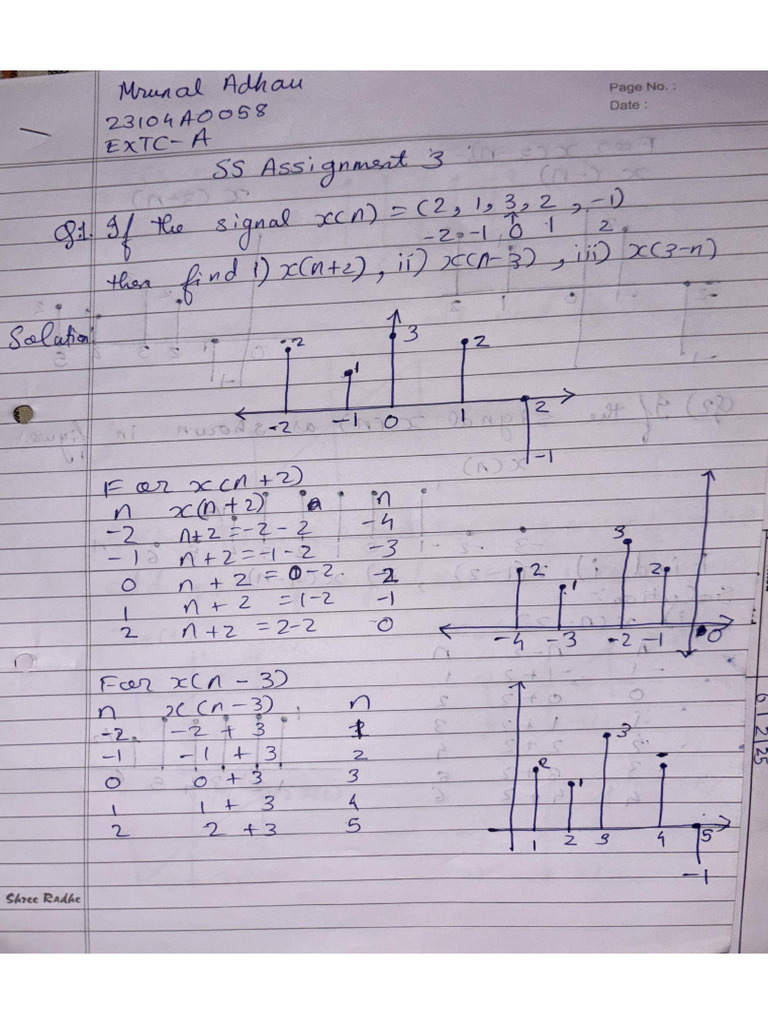 Mrunal Adhau
Page No. :
23104A0058
Date :
EXTC-A
SS Assignment 3
Q1. If the signal x(n) = (2, 1, 3, 2, -1)
↑
-2 -1 0 1 2
then find i) x(n+2), ii) x(n-3), iii) x(3-n)
Solution
2 1 3 2
-2 -1 0 1 2
-1
For x(n+2)
n x(n+2) n
-2 n+2 = -2-2 -4
-1 n+2 = -1-2 -3
0 n+2 = 0-2 -2
1 n+2 = 1-2 -1
2 n+2 = 2-2 0
2 1 3 2
-4 -3 -2 -1 0
For x(n-3)
n x(n-3) n
-2 -2+3 1
-1 -1+3 2
0 0+3 3
1 1+3 4
2 2+3 5
2 1 3
1 2 3 4 5
-1
Shree Radhe